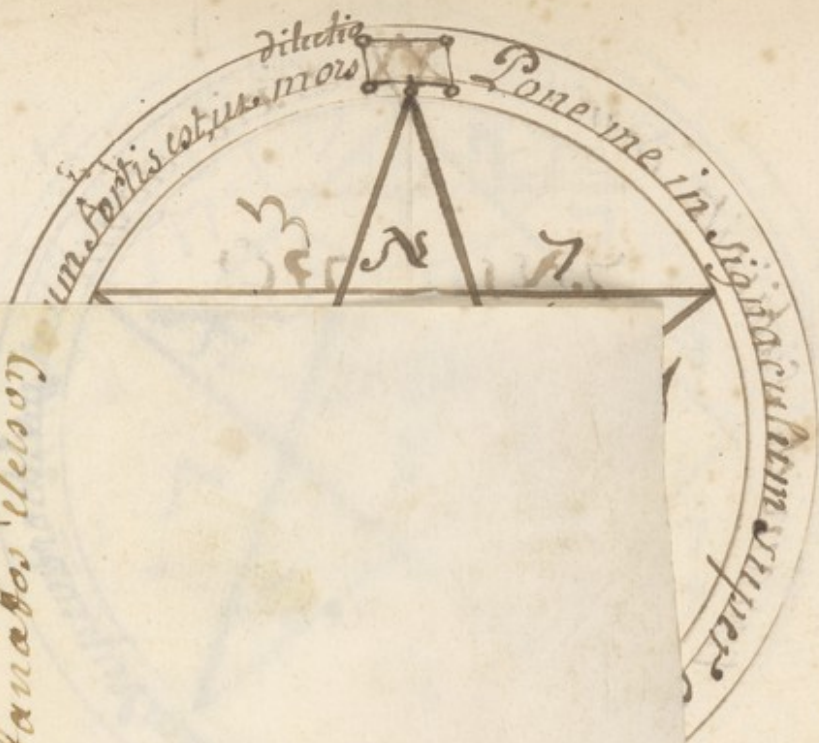 Pone me in signaculum super
um fortis est, ut mors
dilectio
N
eleison